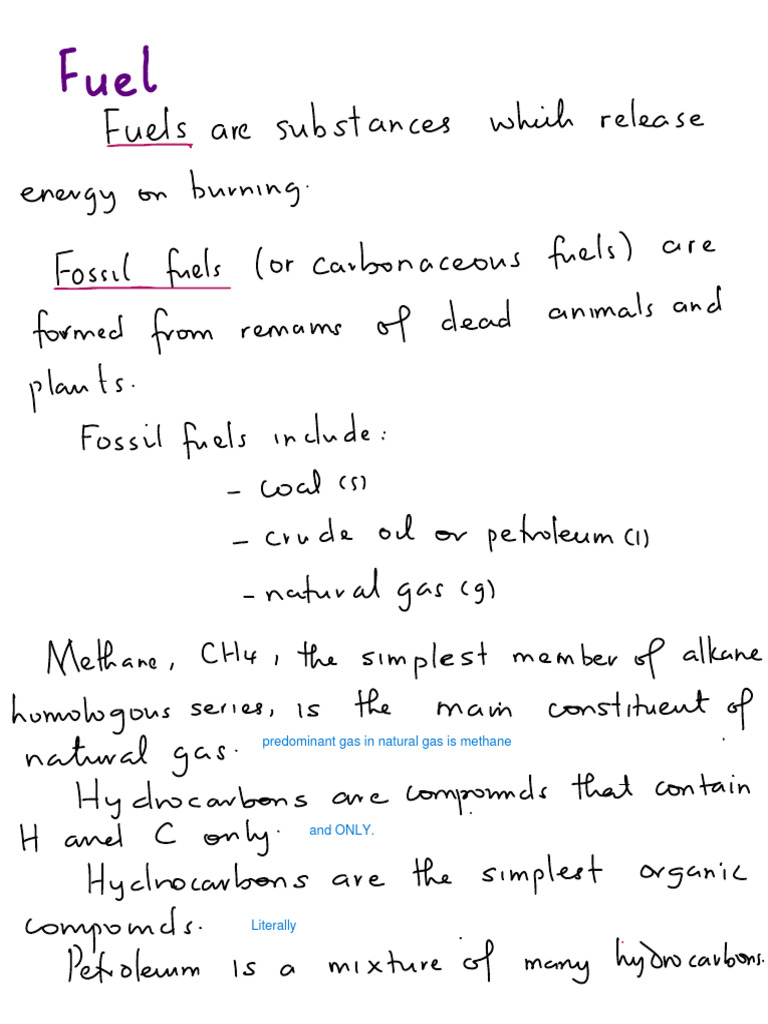 Fuel
Fuels are substances which release
energy on burning.
Fossil fuels (or carbonaceous fuels) are
formed from remains of dead animals and
plants.
Fossil fuels include:
- coal (s)
- crude oil or petroleum (l)
- natural gas (g)
Methane, CH4, the simplest member of alkane
homologous series, is the main constituent of
natural gas. predominant gas in natural gas is methane
Hydrocarbons are compounds that contain
H and C only. and ONLY.
Hydrocarbons are the simplest organic
compounds. Literally
Petroleum is a mixture of many hydrocarbons.